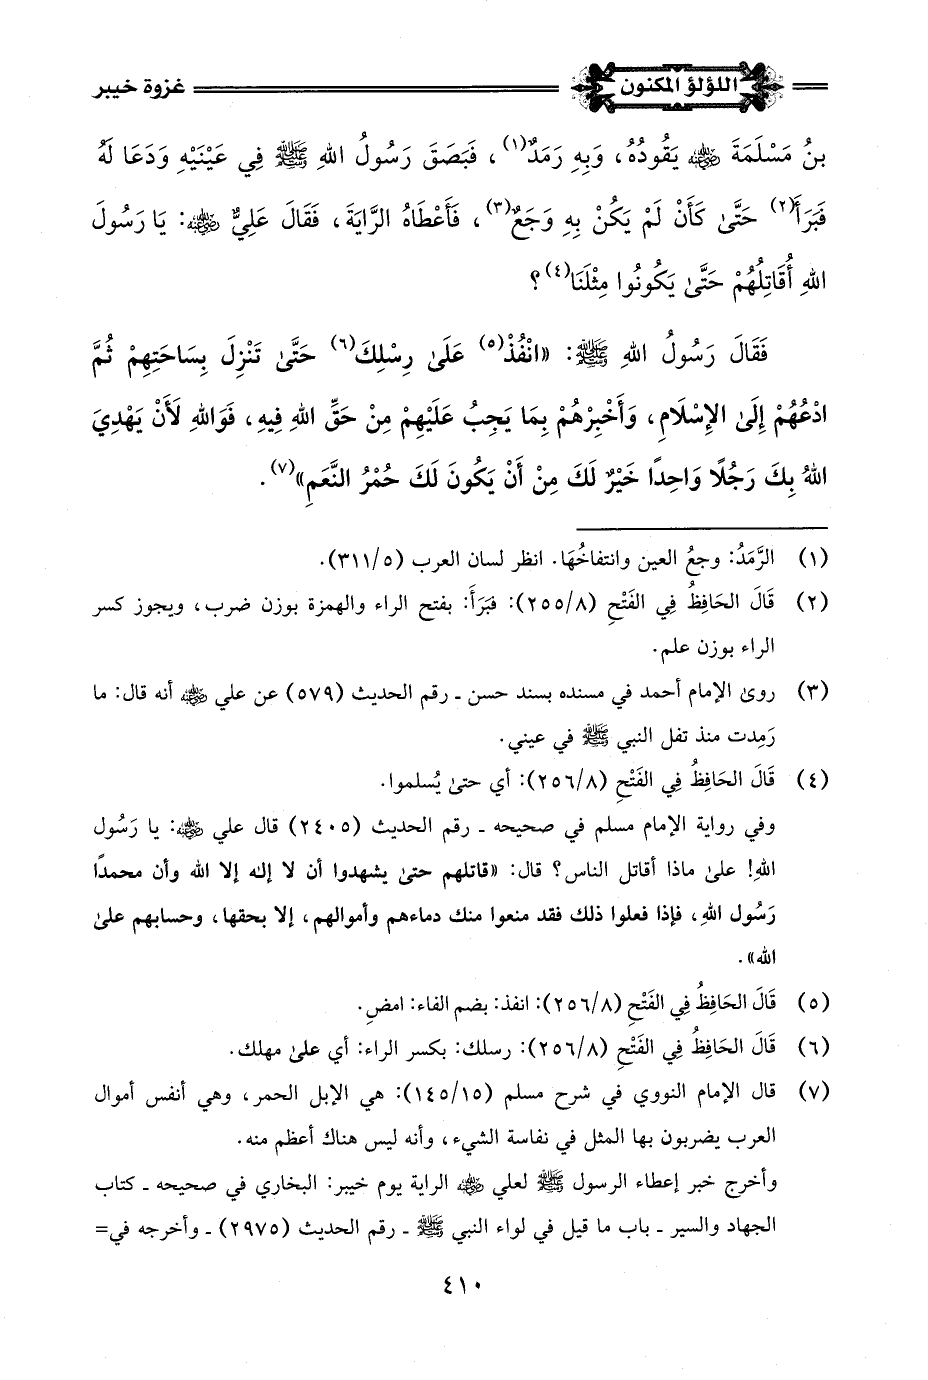 اللؤلؤ المكنون غزوة خيبر
بنُ مَسْلَمَةَ ﵁ يَقُودُهُ، وَبِهِ رَمَدٌ(١)، فَبَصَقَ رَسُولُ اللهِ ﷺ فِي عَيْنَيْهِ وَدَعَا لَهُ
فَبَرَأَ(٢) حَتَّىٰ كَأَنْ لَمْ يَكُنْ بِهِ وَجَعٌ(٣)، فَأَعْطَاهُ الرَّايَةَ، فَقَالَ عَلِيٌّ ﵁: يَا رَسُولَ
اللهِ أُقَاتِلُهُمْ حَتَّىٰ يَكُونُوا مِثْلَنَا(٤)؟
فَقَالَ رَسُولُ اللهِ ﷺ: «انْفُذْ(٥) عَلَىٰ رِسْلِكَ(٦) حَتَّىٰ تَنْزِلَ بِسَاحَتِهِمْ ثُمَّ
ادْعُهُمْ إِلَىٰ الإِسْلَامِ، وَأَخْبِرْهُمْ بِمَا يَجِبُ عَلَيْهِمْ مِنْ حَقِّ اللهِ فِيهِ، فَوَاللهِ لَأَنْ يَهْدِيَ
اللهُ بِكَ رَجُلًا وَاحِدًا خَيْرٌ لَكَ مِنْ أَنْ يَكُونَ لَكَ حُمْرُ النَّعَمِ»(٧).
(١) الرَّمَدُ: وجعُ العين وانتفاخُهَا. انظر لسان العرب (٣١١/٥).
(٢) قَالَ الحَافِظُ فِي الفَتْحِ (٢٥٥/٨): فبَرَأَ: بفتح الراء والهمزة بوزن ضرب، ويجوز كسر
الراء بوزن علم.
(٣) روىٰ الإمام أحمد في مسنده بسند حسن ـ رقم الحديث (٥٧٩) عن علي ﵁ أنه قال: ما
رَمِدت منذ تفل النبي ﷺ في عيني.
(٤) قَالَ الحَافِظُ فِي الفَتْحِ (٢٥٦/٨): أي حتىٰ يُسلموا.
وفي رواية الإمام مسلم في صحيحه ـ رقم الحديث (٢٤٠٥) قال علي ﵁: يا رَسُول
اللهِ! علىٰ ماذا أقاتل الناس؟ قال: «قاتلهم حتىٰ يشهدوا أن لا إله إلا الله وأن محمدًا
رَسُول اللهِ، فإذا فعلوا ذلك فقد منعوا منك دماءهم وأموالهم، إلا بحقها، وحسابهم علىٰ
الله».
(٥) قَالَ الحَافِظُ فِي الفَتْحِ (٢٥٦/٨): انفذ: بضم الفاء: امضِ.
(٦) قَالَ الحَافِظُ فِي الفَتْحِ (٢٥٦/٨): رسلك: بكسر الراء: أي علىٰ مهلك.
(٧) قال الإمام النووي في شرح مسلم (١٤٥/١٥): هي الإبل الحمر، وهي أنفس أموال
العرب يضربون بها المثل في نفاسة الشيء، وأنه ليس هناك أعظم منه.
وأخرج خبر إعطاء الرسول ﷺ لعلي ﵁ الراية يوم خيبر: البخاري في صحيحه ـ كتاب
الجهاد والسير ـ باب ما قيل في لواء النبي ﷺ ـ رقم الحديث (٢٩٧٥) ـ وأخرجه في=
٤١٠